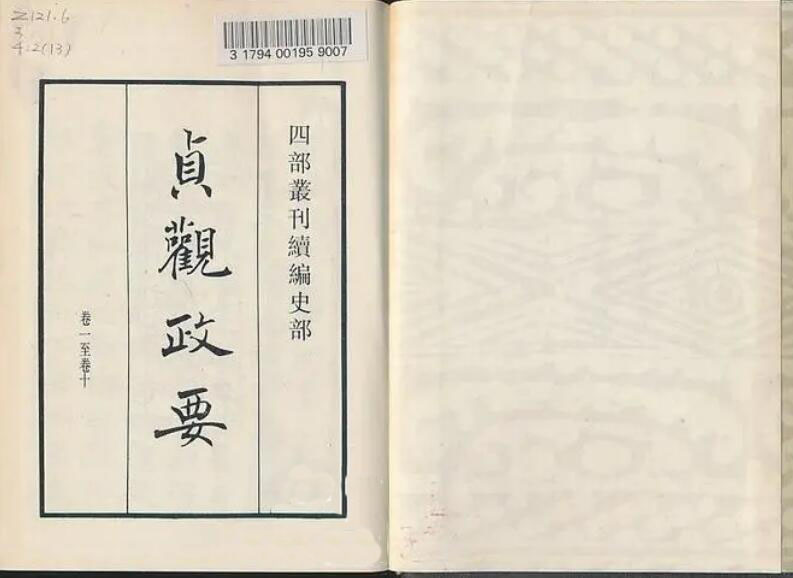 Z121.6
3
4:2(13)
3 1794 00195 9007
四部叢刊續編史部
貞觀政要
卷一至卷十